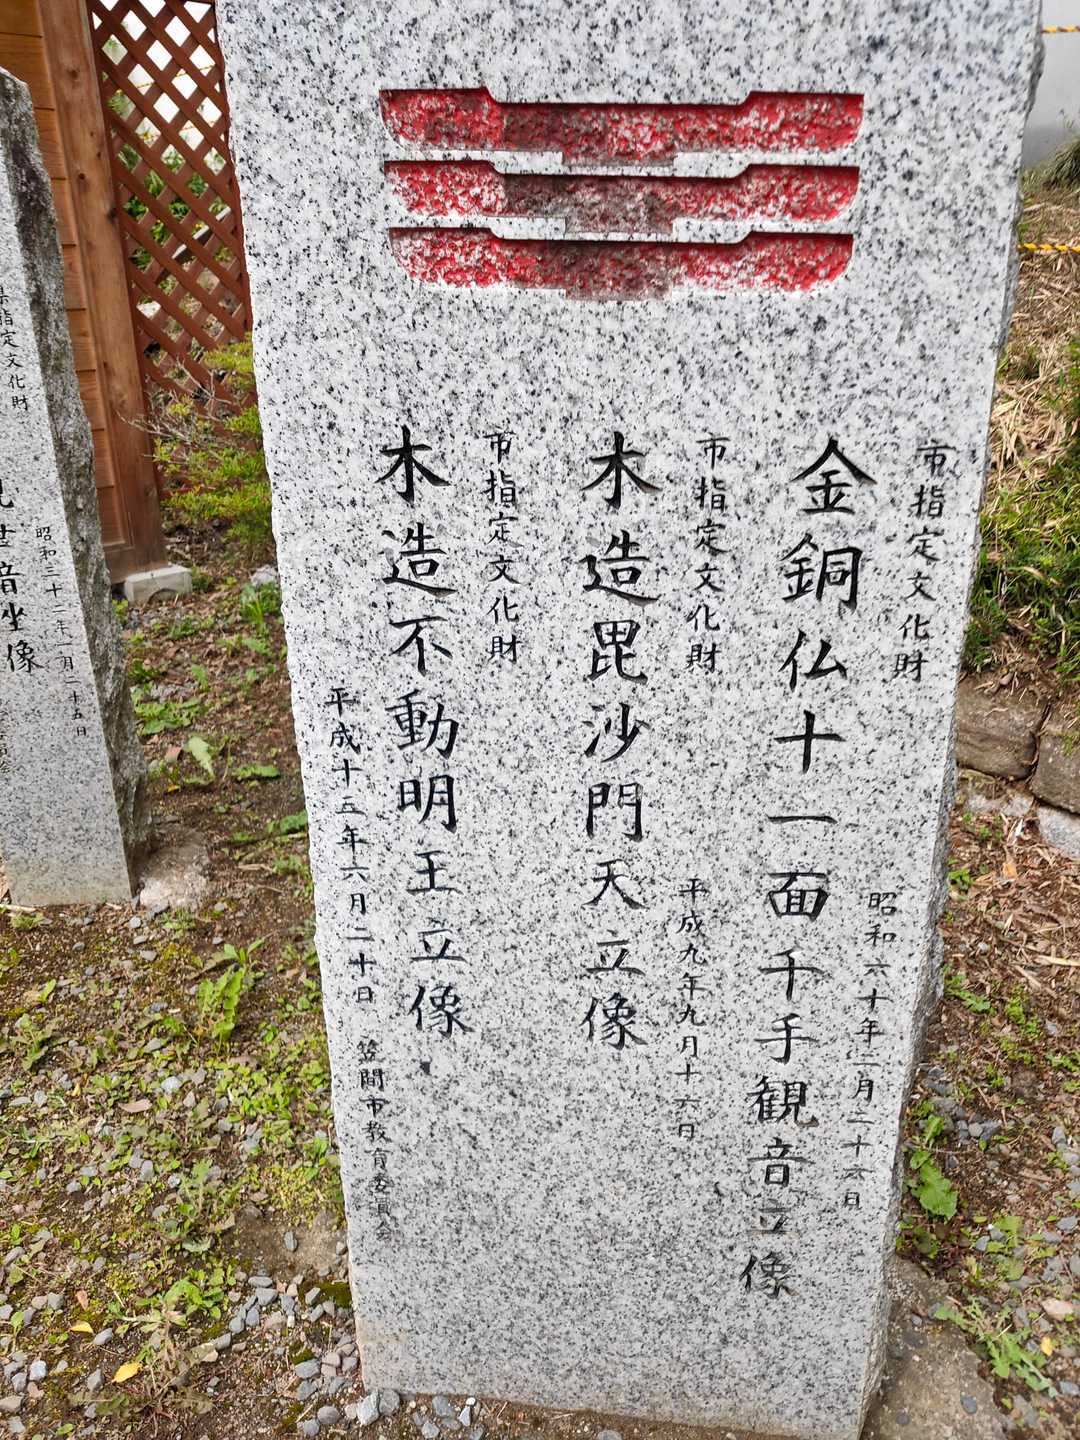 市指定文化財
金銅仏十一面千手観音立像
昭和六十年二月二十六日
市指定文化財
木造毘沙門天立像
平成九年九月十六日
市指定文化財
木造不動明王立像
平成十三年六月二十日 笠間市教育委員会
指定文化財
音坐像
昭和三十二年一月二十五日